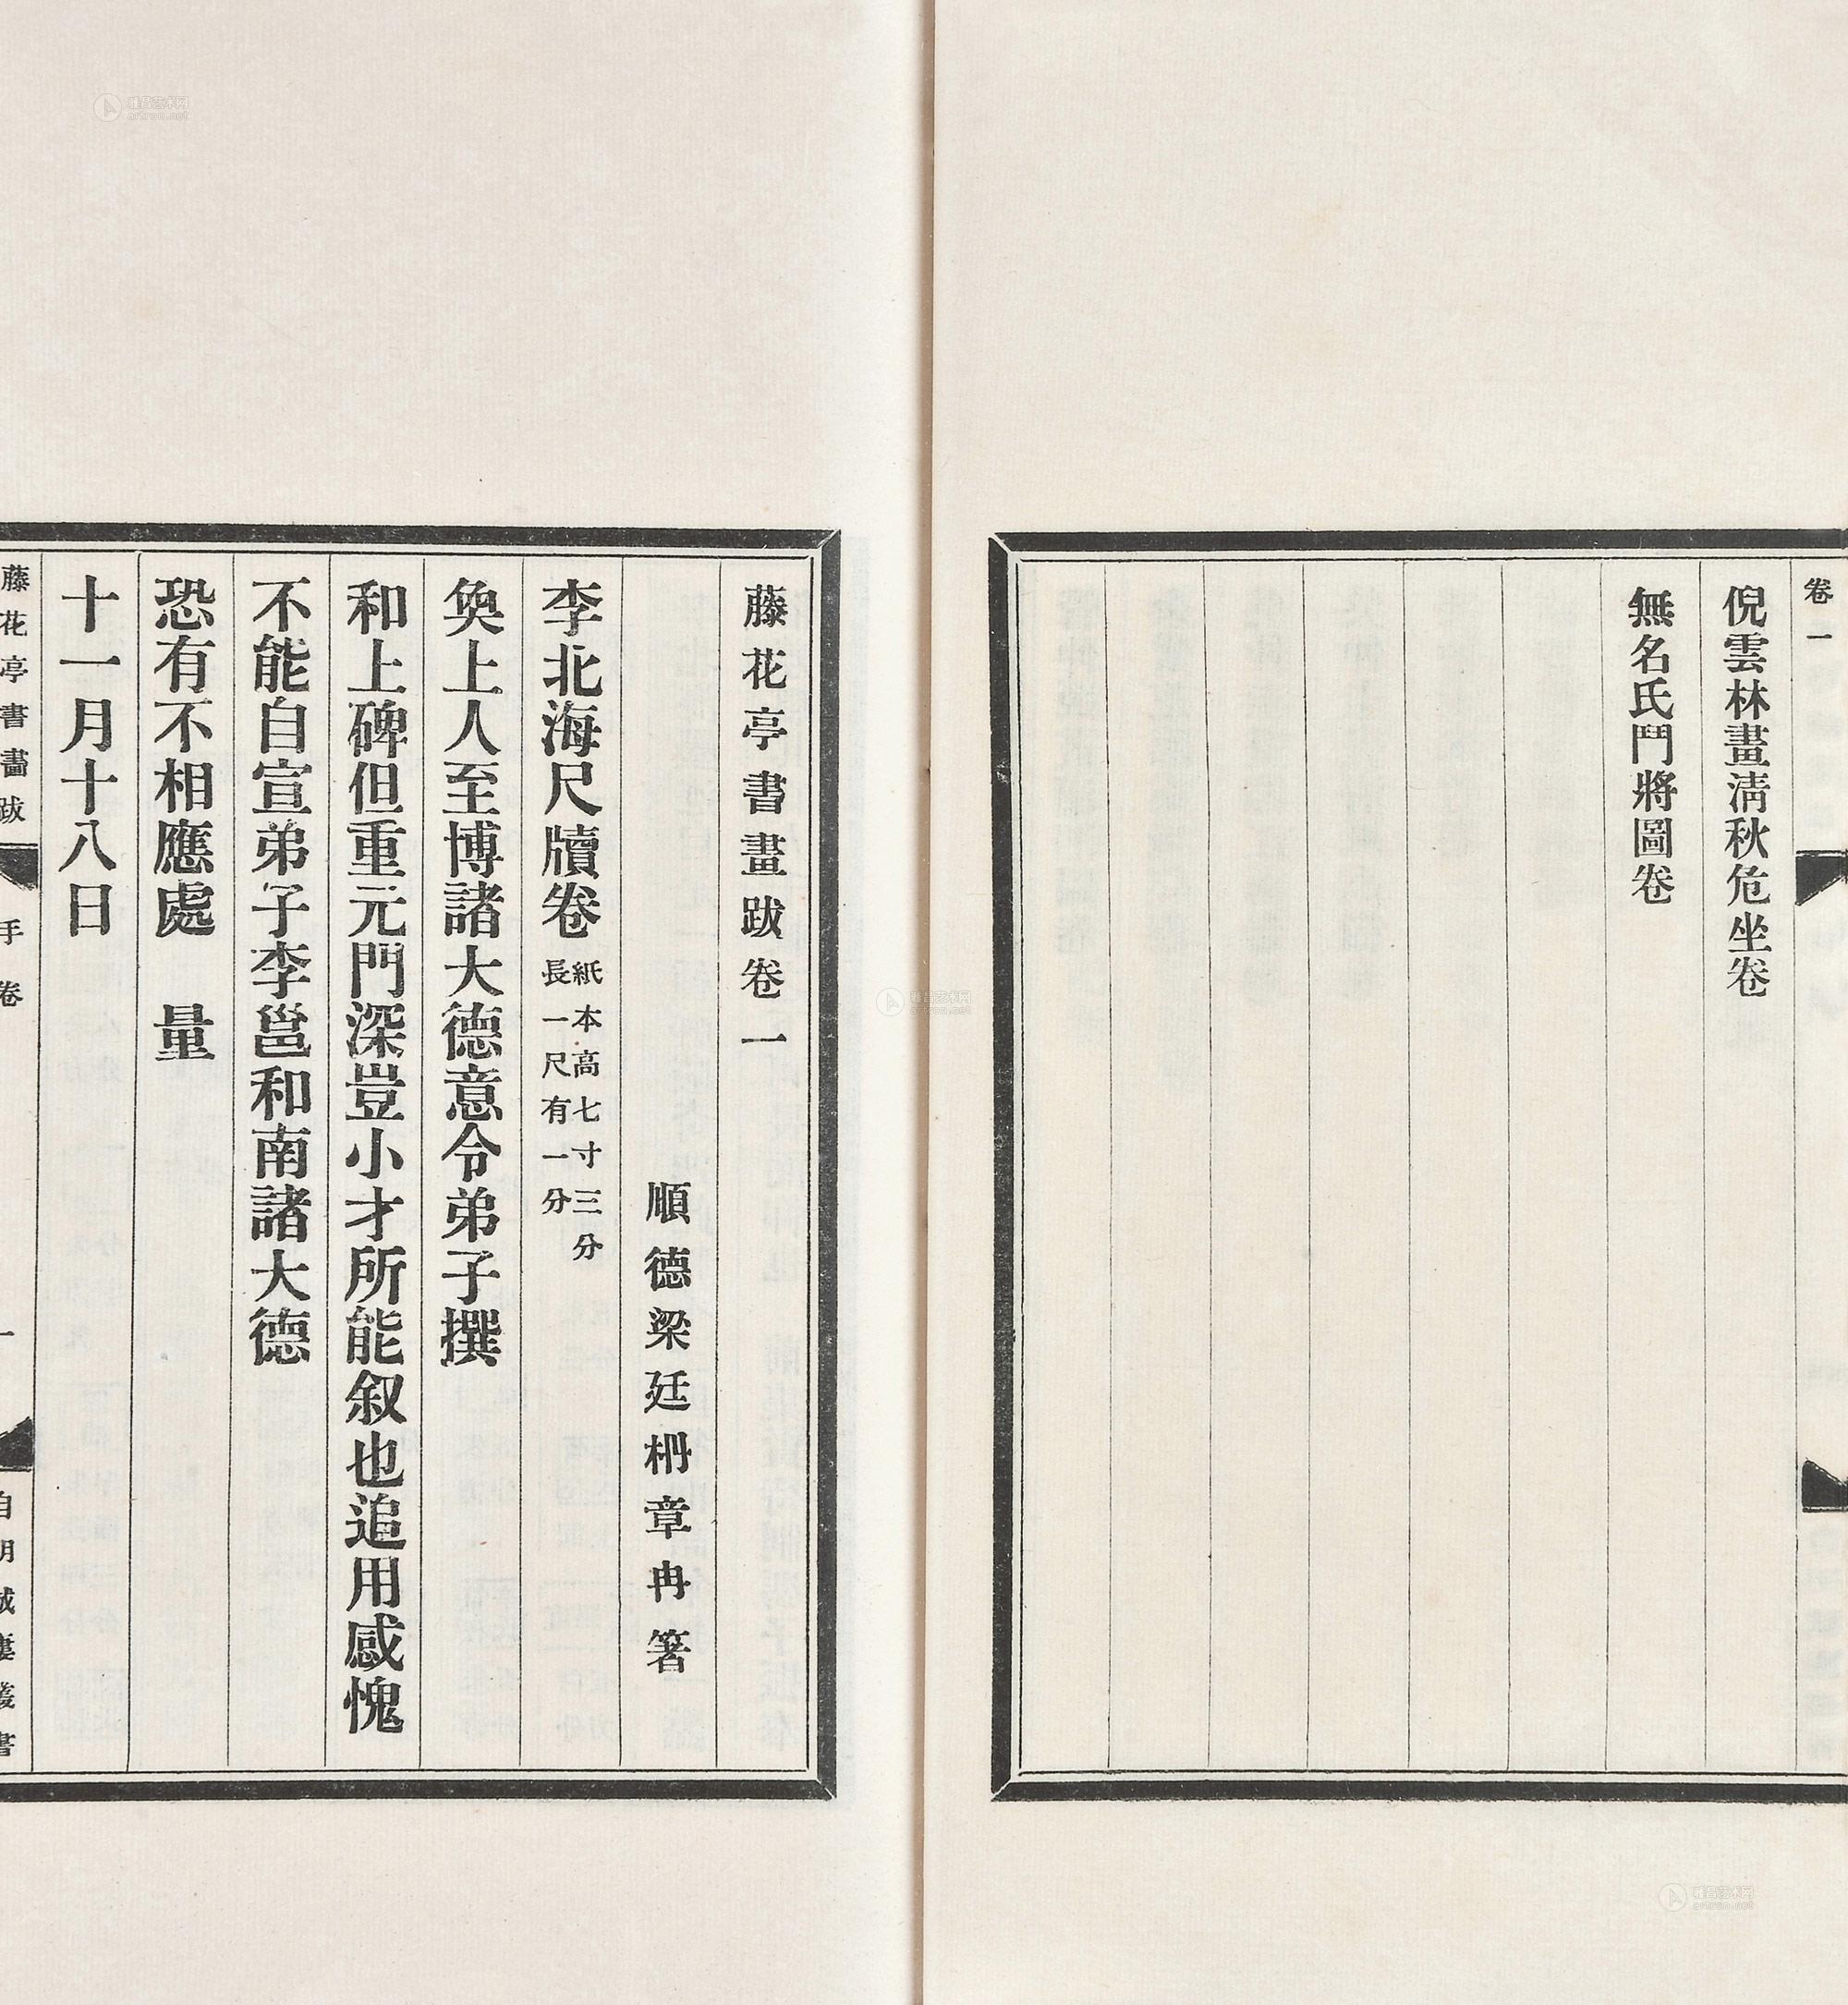 卷一
倪雲林畫淸秋危坐卷
無名氏鬥將圖卷
藤花亭書畫跋卷一
順德梁廷枏章冉箸
李北海尺牘卷
紙本高七寸三分
長一尺有一分
奐上人至博諸大德意令弟子撰
和上碑但重元門深豈小才所能叙也追用感愧
不能自宣弟子李邕和南諸大德
恐有不相應處　量
十一月十八日
藤花亭書畵跋
手卷
一
自明誠廔叢書
雅昌艺术网
artron.net
雅昌艺术网
artron.net
雅昌艺术网
artron.net